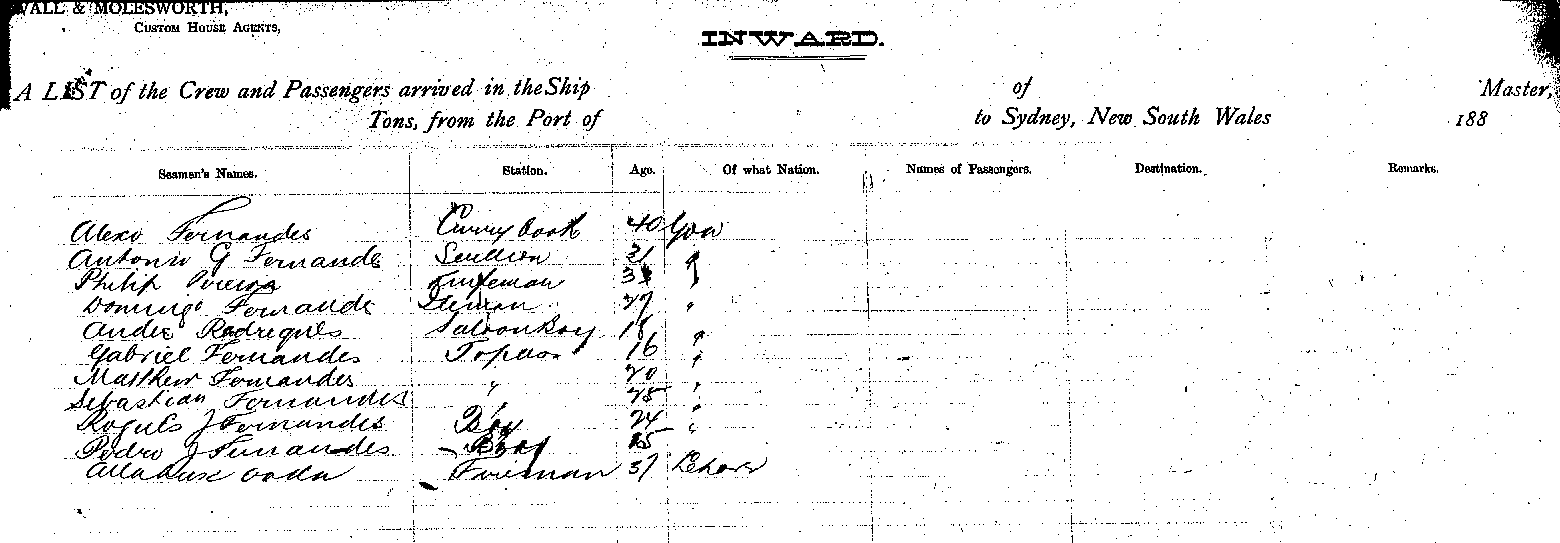 WALL & MOLESWORTH,
CUSTOM HOUSE AGENTS,
INWARD.
A LIST of the Crew and Passengers arrived in the Ship of Master,
Tons, from the Port of to Sydney, New South Wales 188
Seamen's Names. Station. Age. Of what Nation. Names of Passengers. Destination. Remarks.
Alexo Fernandes Curry Cook 40 Goa
Antonio G Fernandes 21 "
Philip Pereira "
Domingo Fernands 27 "
Andre Rodrigues Saloon Boy 18 "
Gabriel Fernandes Topass 16 "
Matthew Fernandes " 20 "
Sebastian Fernandes " 25 "
Roques J Fernandes Boy 24 "
Pedro J Fernandes Boy
Fireman 37